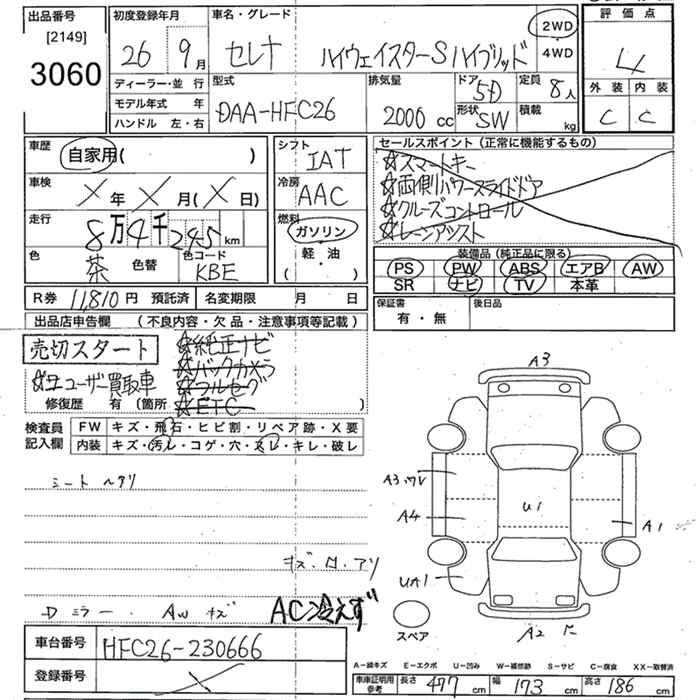 出品番号 初度登録年月 車名・グレード 評価点
[2149]
3060
26 9月 セレナ ハイウェイスターS ハイブリッド 2WD 4WD 4
ディーラー・並 行 型式 排気量 ドア 5D 定員 8人 外装 内装
モデル年式 年 DAA-HFC26 2000 cc 形状 SW 積載 kg C C
ハンドル 左・右
車歴 自家用( ) シフト IAT セールスポイント(正常に機能するもの)
☆スマートキー
車検 × 年 × 月(× 日) 冷房 AAC ☆両側パワースライドドア
☆クルーズコントロール
走行 8万4千245km 燃料 ガソリン ☆レーンアシスト
軽・油
( )
色 茶 色替 色コード KBE 装備品(純正品に限る)
PS PW ABS エアB AW
SR ナビ TV 本革
R券 11,810円 預託済 名変期限 月 日 保証書 有・無 後日品
出品店申告欄 (不良内容・欠品・注意事項等記載)
売切スタート ☆純正ナビ
☆バックカメラ
☆ユーザー買取車 ☆フルセグ
修復歴 有 (箇所 ☆ETC )
検査員 記入欄 FW キズ・飛石・ヒビ割・リペア跡・X要
内装 キズ・汚レ・コゲ・穴・スレ・キレ・破レ
シート ヘタリ
A3
U1
A4
A1
UA1
A2
スペア
Dミラー・AWキズ AC冷えず
車台番号 HFC26-230666
登録番号 ×
A−線キズ E−エクボ U−凹み W−補修跡 S−サビ C−腐食 XX−取替済
車庫証明用 参考 長さ 477 cm 幅 173 cm 高さ 186 cm